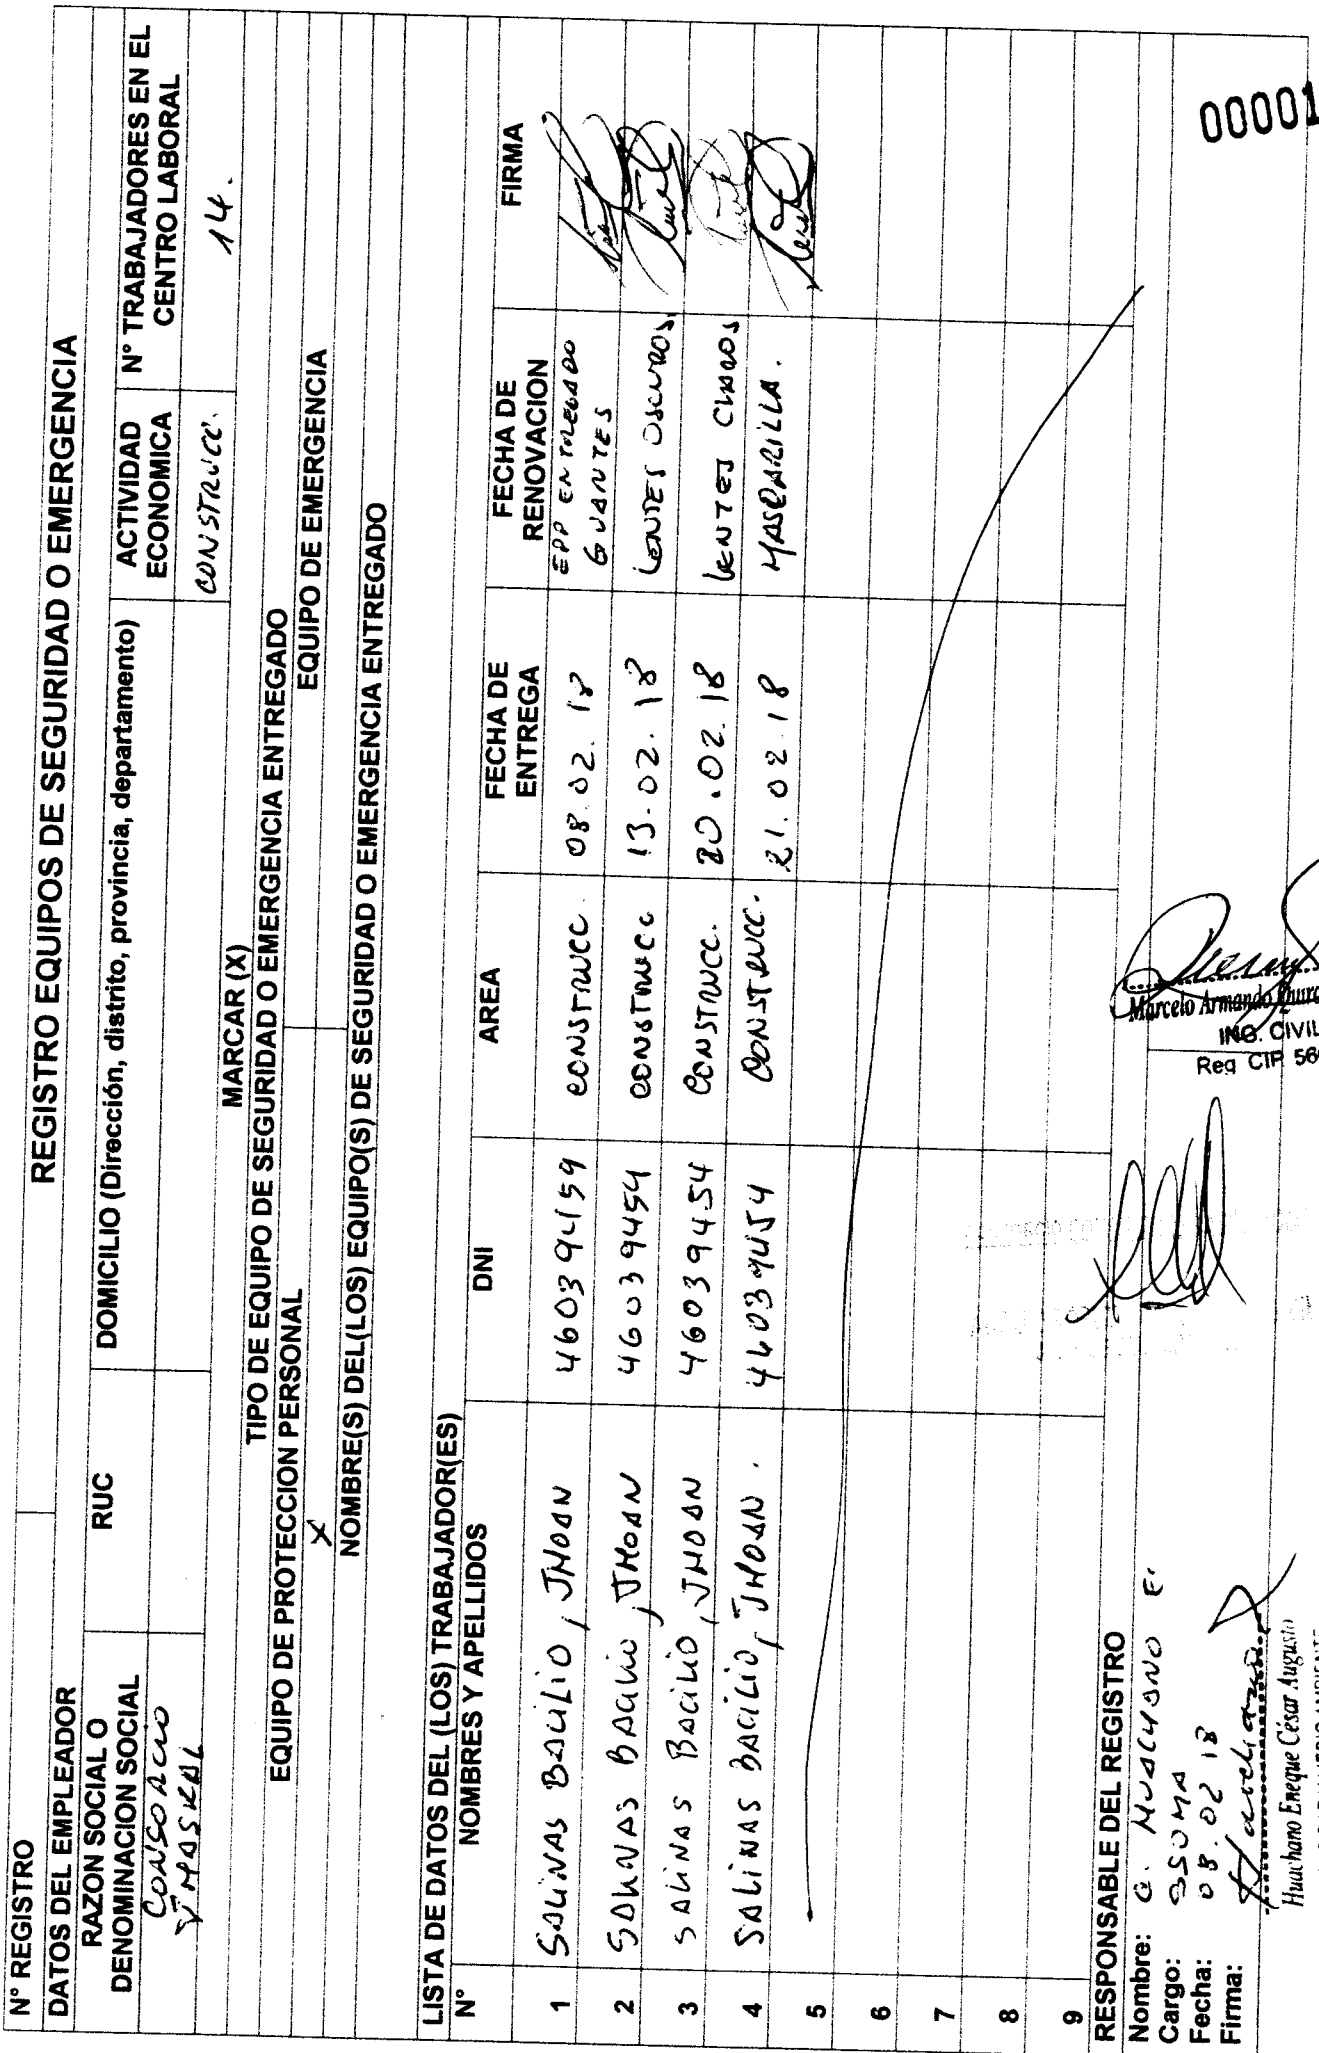 REGISTRO EQUIPOS DE SEGURIDAD O EMERGENCIA
N° REGISTRO
DATOS DEL EMPLEADOR
RAZON SOCIAL O DENOMINACION SOCIAL
RUC
DOMICILIO (Dirección, distrito, provincia, departamento)
ACTIVIDAD ECONOMICA
N° TRABAJADORES EN EL CENTRO LABORAL
CONSORCIO
CONSTRUCC.
14.
MARCAR (X)
TIPO DE EQUIPO DE SEGURIDAD O EMERGENCIA ENTREGADO
EQUIPO DE PROTECCION PERSONAL
EQUIPO DE EMERGENCIA
X
NOMBRE(S) DEL(LOS) EQUIPO(S) DE SEGURIDAD O EMERGENCIA ENTREGADO
LISTA DE DATOS DEL (LOS) TRABAJADOR(ES)
N° NOMBRES Y APELLIDOS DNI AREA FECHA DE ENTREGA FECHA DE RENOVACION FIRMA
1 SALINAS BACILIO, JHOAN 46039459 CONSTRUCC. 08.02.18 EPP ENTREGADO GUANTES
2 SALINAS BACILIO, JHOAN 46039454 CONSTRUCC 13.02.18 LENTES OSCUROS
3 SALINAS BACILIO, JHOAN 46039454 CONSTRUCC. 20.02.18 LENTES CLAROS
4 SALINAS BACILIO, JHOAN. 46039454 CONSTRUCC. 21.02.18 MASCARILLA.
5
6
7
8
9
RESPONSABLE DEL REGISTRO
Nombre: C. HUACHANO E.
Cargo: SSOMA
Fecha: 08.02 18
Firma:
Huachano Eneque César Augusto
Marcelo Armando
ING. CIVIL
Reg CIP 56
00001